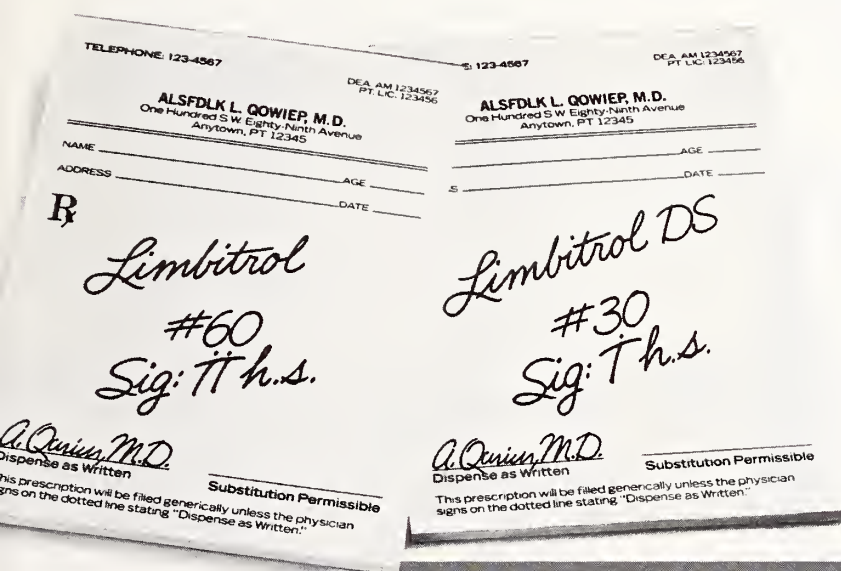 TELEPHONE: 123-4567
DEA. AM 1234567
PT. LIC. 123456
ALSFDLK L. QOWIEP, M.D.
One Hundred S.W. Eighty-Ninth Avenue
Anytown, PT 12345
NAME AGE
ADDRESS DATE
Rx
Limbitrol
#60
Sig: TT h.s.
A. Qarius, M.D.
Dispense as Written
Substitution Permissible
This prescription will be filled generically unless the physician
signs on the dotted line stating "Dispense as Written."
E: 123-4567
DEA. AM 1234567
PT. LIC. 123456
ALSFDLK L. QOWIEP, M.D.
One Hundred S.W. Eighty-Ninth Avenue
Anytown, PT 12345
AGE
S DATE
Limbitrol DS
#30
Sig: T h.s.
A. Qarius, M.D.
Dispense as Written
Substitution Permissible
This prescription will be filled generically unless the physician
signs on the dotted line stating "Dispense as Written."